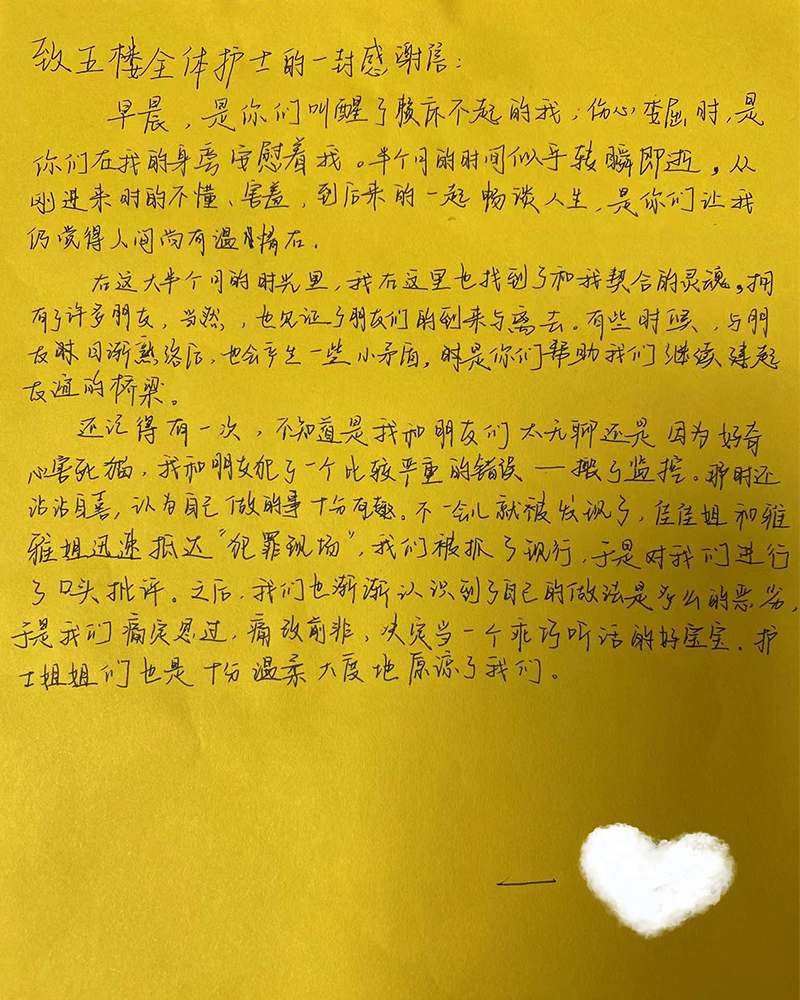 致五楼全体护士的一封感谢信：
早晨，是你们叫醒了赖床不起的我；伤心委屈时，是
你们在我的身旁安慰着我。半个月的时间似乎转瞬即逝，从
刚进来时的不懂、害羞，到后来的一起畅谈人生，是你们让我
仍觉得人间尚有温情在。
在这大半个月的时光里，我在这里也找到了和我契合的灵魂，拥
有了许多朋友，当然，也见证了朋友们的到来与离去。有些时候，与朋
友时日渐熟络后，也会产生一些小矛盾，时是你们帮助我们继续建起
友谊的桥梁。
还记得有一次，不知道是我和朋友们太无聊还是因为好奇
心害死猫，我和朋友犯了一个比较严重的错误——搬了监控。那时还
沾沾自喜，认为自己做的事十分有趣。不一会儿就被发现了，佳佳姐和雅
雅姐迅速抵达“犯罪现场”，我们被抓了现行，于是对我们进行
了口头批评。之后，我们也渐渐认识到了自己的做法是多么的恶劣，
于是我们痛定思过，痛改前非，决定当一个乖巧听话的好宝宝。护
士姐姐们也是十分温柔大度地原谅了我们。